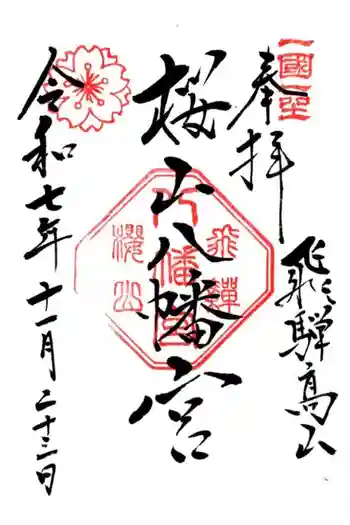 一國一社
奉拝
飛騨高山
桜山八幡宮
飛騨
八幡宮
櫻山
令和七年十一月二十三日